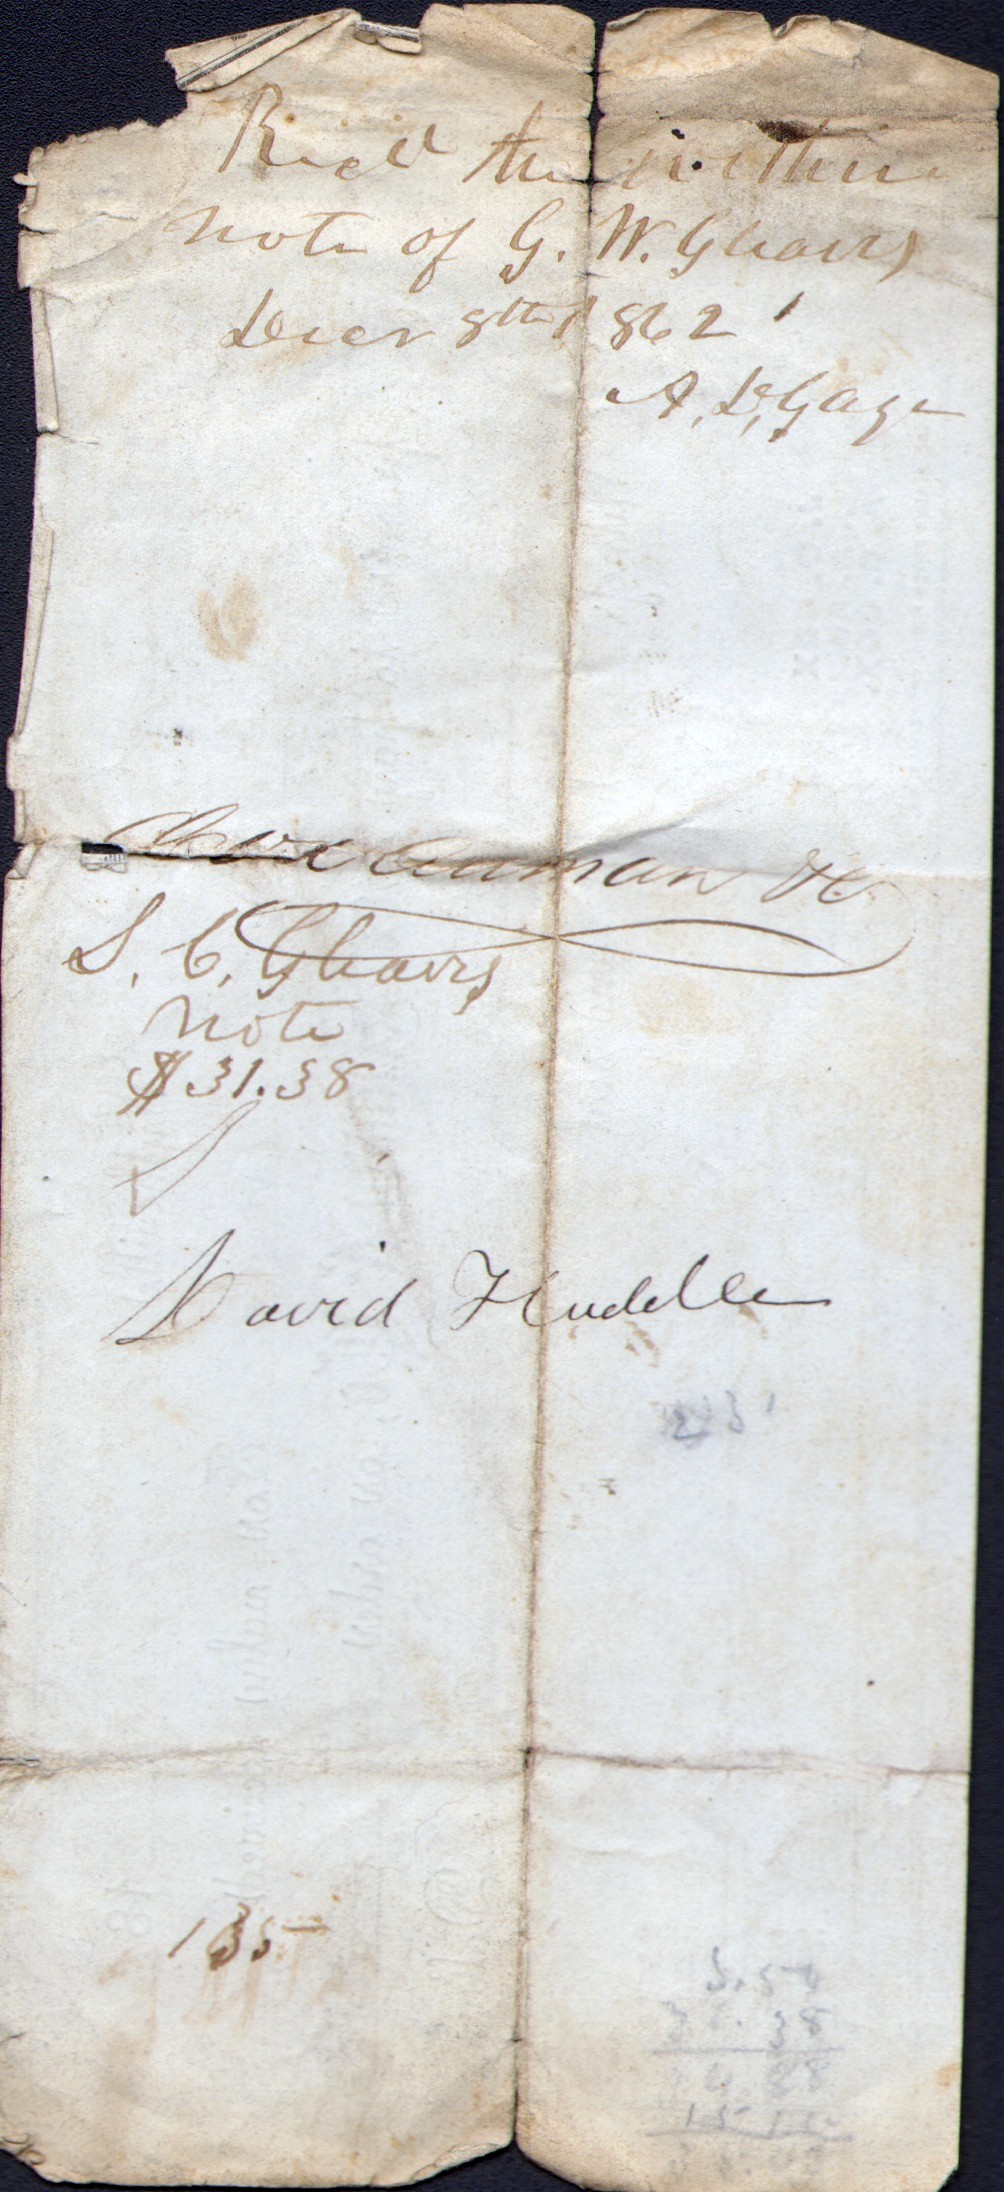 Recd the within
note of G. W. Gleaves
Decr 8th 1862
A. D. Gage
S. C. Gleaves
note
$31.38
David Huddle
135
3.50
31.38